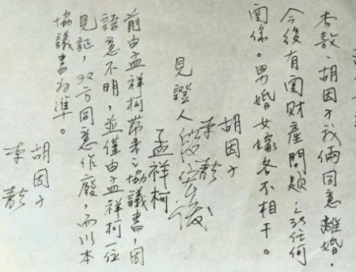 李敖、胡因子我倆同意離婚。
今後有關財產問題,啟任何
關係。男婚女嫁各不相干。
胡因子
李敖
見證人
孟祥柯
前由孟祥柯草之協議書,因
語意不明,並僅由孟祥柯一位
見証,双方同意作廢,而以本
協議書為準。
胡因子
李敖